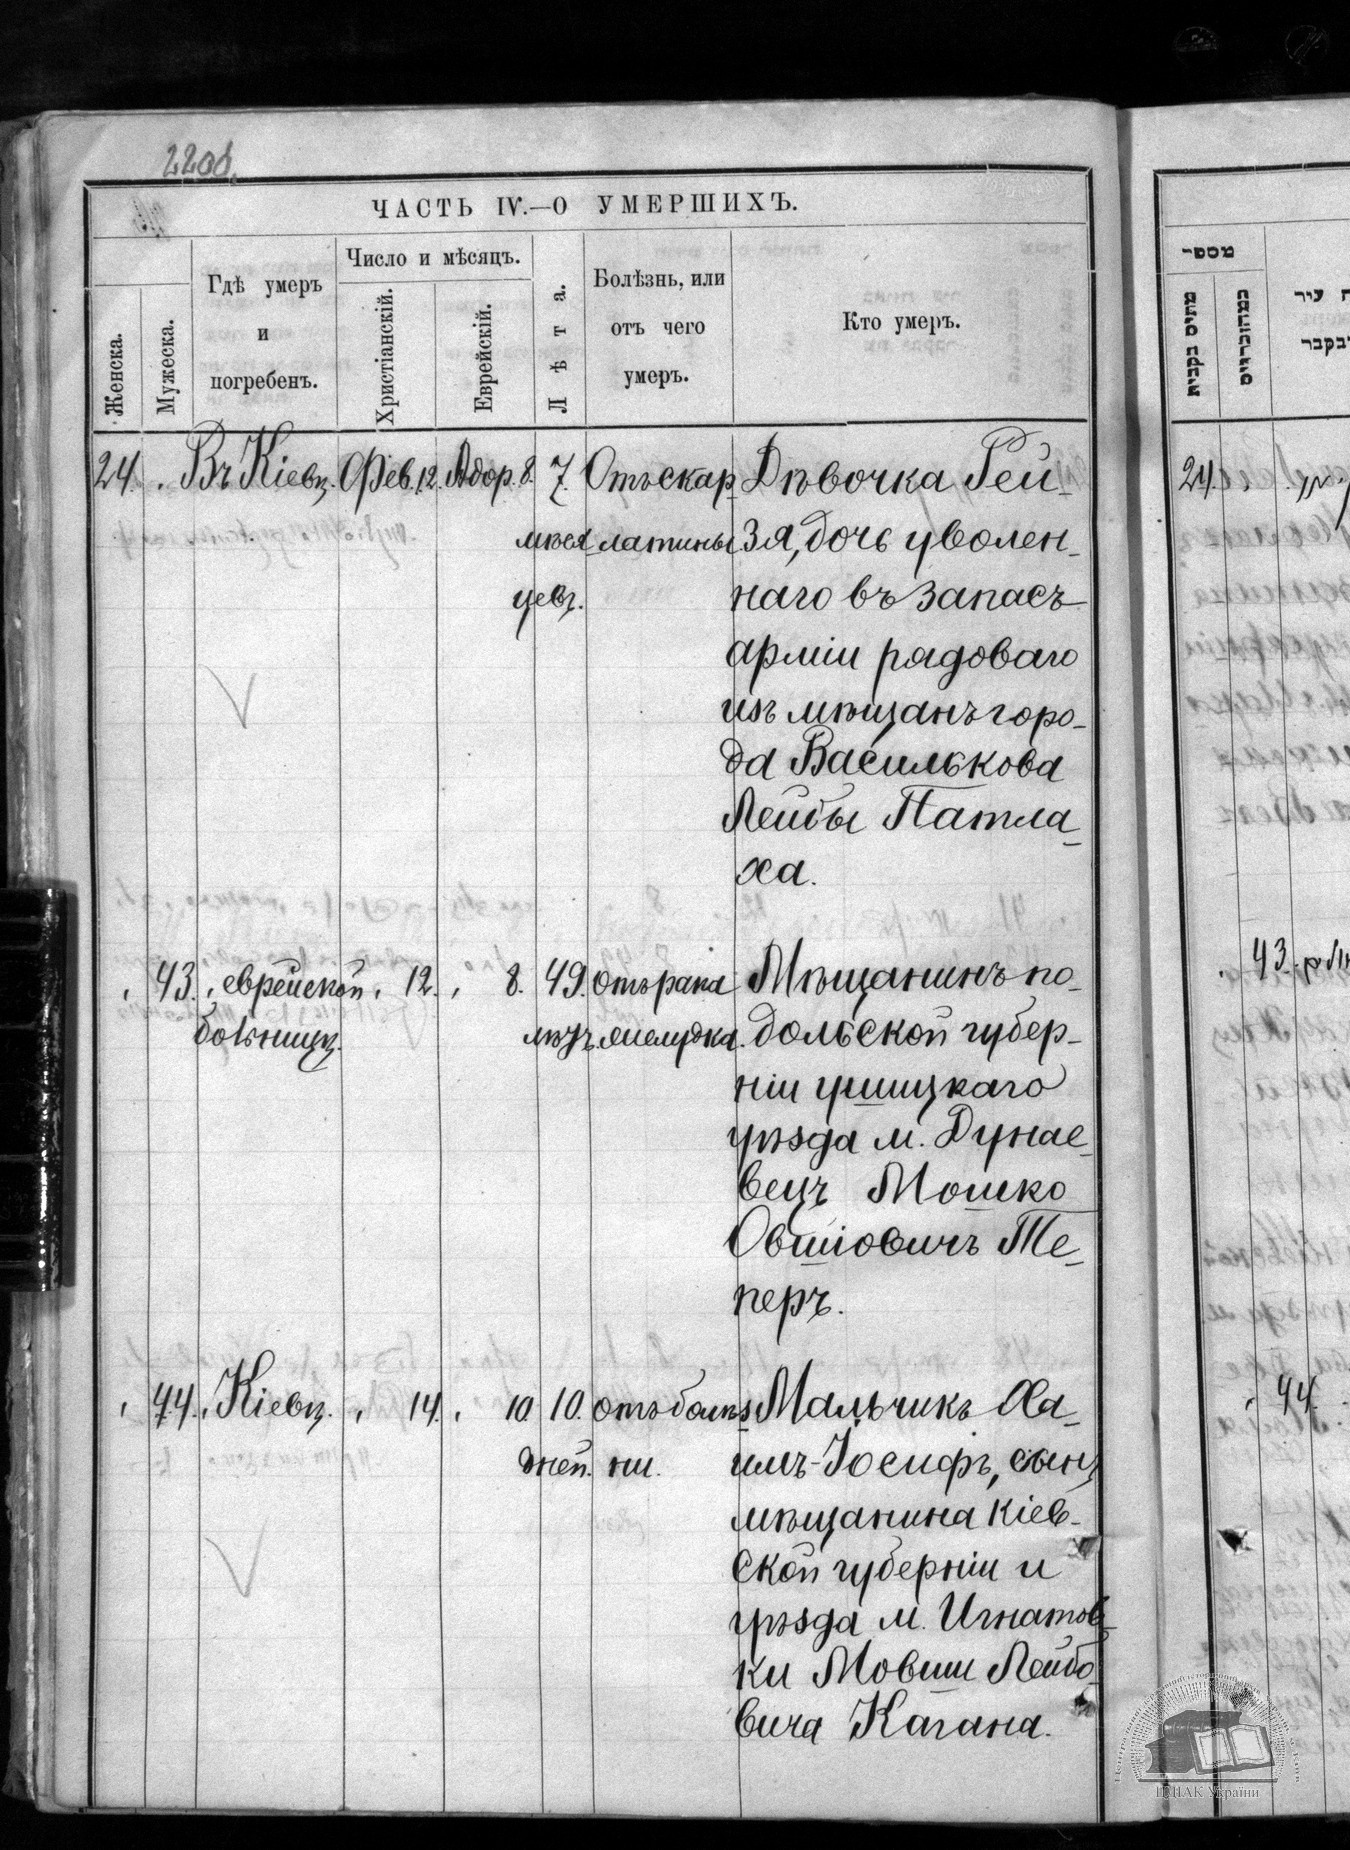 2208.
ЧАСТЬ IV.—О УМЕРШИХЪ.
Женска.
Мужеска.
Гдѣ умеръ
и
погребенъ.
Число и мѣсяцъ.
Христіанскій.
Еврейскій.
Лѣта.
Болѣзнь, или
отъ чего
умеръ.
Кто умеръ.
24. Въ Кіевѣ. Фев. 12. Адор. 8. 7. Отъ скар- Дѣвочка Рей-
мѣся латины зя, дочь уволен-
цевъ. наго въ запасъ
арміи рядоваго
изъ мѣщанъ горо-
да Василькова
Лейбы Патла-
ха.
43. еврейской 12. 8. 49. отъ рака Мѣщанинъ по-
больницѣ. лѣтъ. желудка. дольской губер-
ніи ушицкаго
уѣзда м. Дунае-
вецъ Мошко
Овшіовичъ Те-
перъ.
44. Кіевѣ. 14. 10. 10. отъ болѣз- Мальчикъ Ха-
дней. ни. имъ-Іосифъ, сынъ
мѣщанина кіев-
ской губерніи и
уѣзда м. Игнатов-
ки Мовши Лейбо-
вича Кагана.
מספר
מתים בקברית
במהזכרים
עיר
24.
43.
44.
ЦДІАК України